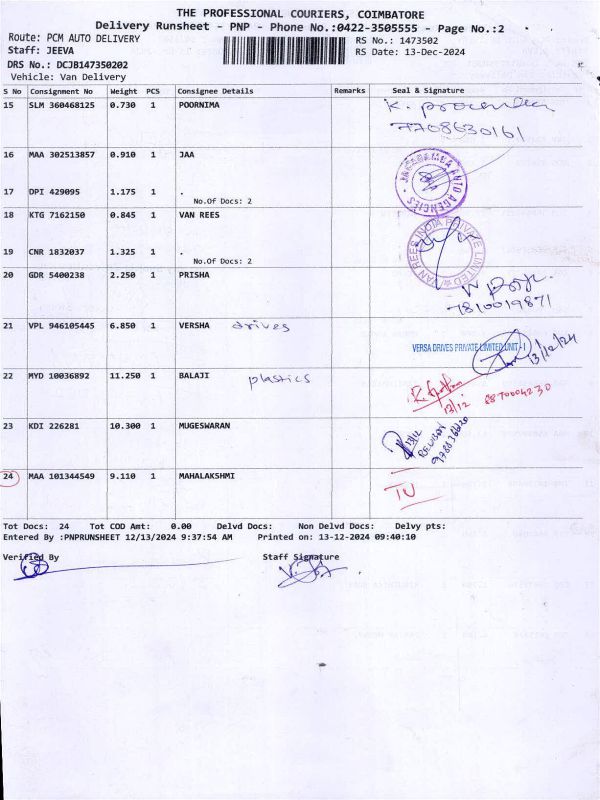 THE PROFESSIONAL COURIERS, COIMBATORE
Delivery Runsheet - PNP - Phone No.:0422-3505555 - Page No.:2
Route: PCM AUTO DELIVERY RS No.: 1473502
Staff: JEEVA RS Date: 13-Dec-2024
DRS No.: DCJB147350202
Vehicle: Van Delivery
S No Consignment No Weight PCS Consignee Details Remarks Seal & Signature
15 SLM 360468125 0.730 1 POORNIMA
7708630161
16 MAA 302513857 0.910 1 JAA
17 DPI 429095 1.175 1 .
No.Of Docs: 2
JAGADAMBA AUTO AGENCIES
18 KTG 7162150 0.845 1 VAN REES
VAN REES INDIA PRIVATE LIMITED
19 CNR 1832037 1.325 1 .
No.Of Docs: 2
20 GDR 5400238 2.250 1 PRISHA
7810019871
21 VPL 946105445 6.850 1 VERSHA drives
VERSA DRIVES PRIVATE LIMITED UNIT-I 13/12/24
22 MYD 10036892 11.250 1 BALAJI plastics
13/12 8870004230
23 KDI 226281 10.300 1 MUGESWARAN
13/12
24 MAA 101344549 9.110 1 MAHALAKSHMI
Tot Docs: 24 Tot COD Amt: 0.00 Delvd Docs: Non Delvd Docs: Delvy pts:
Entered By :PNPRUNSHEET 12/13/2024 9:37:54 AM Printed on: 13-12-2024 09:40:10
Verified By Staff Signature